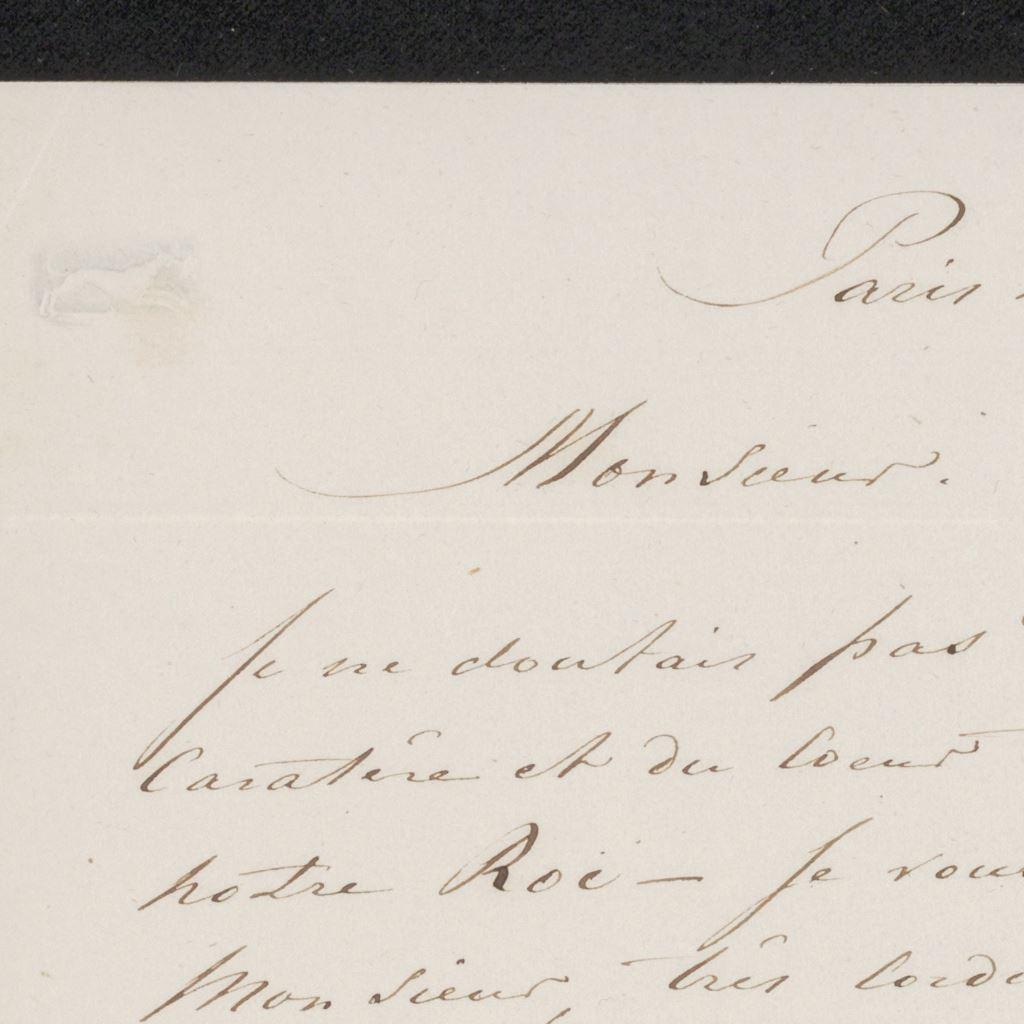 Paris
Monsieur.
Je ne doutais pas
Caractère et du Coeur
nôtre Roi — Je vous
Monsieur, très